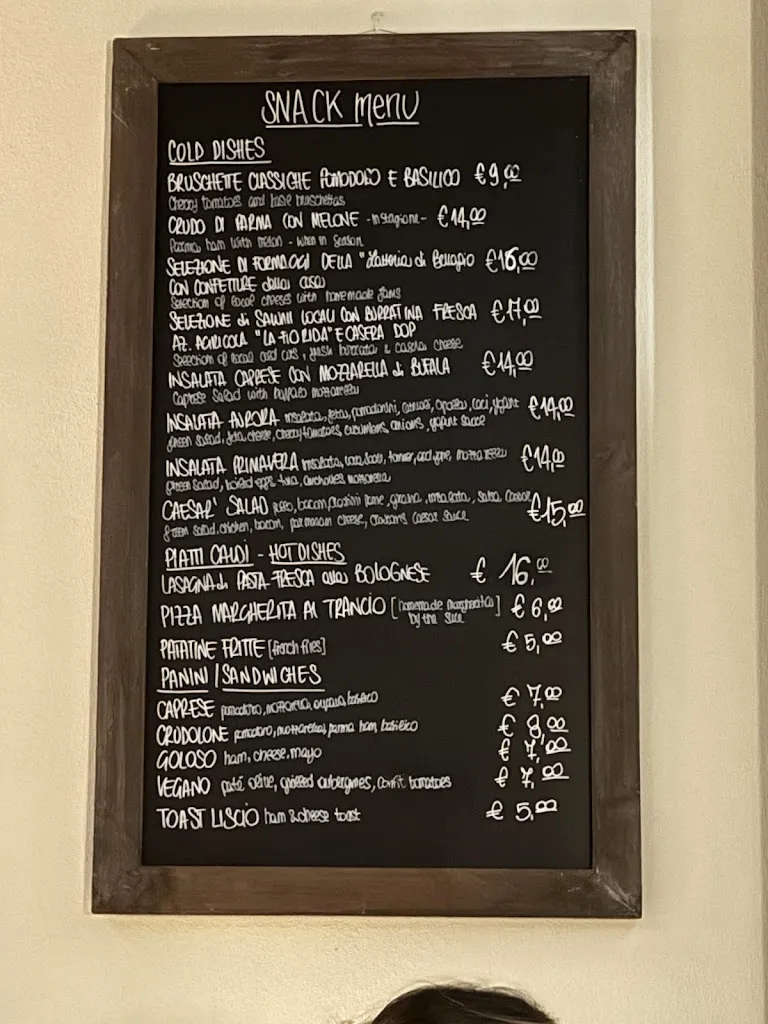 SNACK menu
COLD DISHES
BRUSCHETTE CLASSICHE POMODORO E BASILICO €9,00
Cherry tomatoes and base bruschettas
CRUDO DI PARMA CON MELONE - in stagione - €14,00
Parma ham with melon - when in season
SELEZIONE DI FORMAGGI DELLA "Latteria di Bellagio €16,00
CON CONFETTURE della casa
Selection of local cheeses with homemade jams
SELEZIONE di SALUMI LOCALI CON BURRATINA FRESCA €17,00
AZ. AGRICOLA "LA FIORIDA" E CASERA DOP
Selection of local cold cuts, fresh burrata & casera cheese
INSALATA CAPRESE CON MOZZARELLA di BUFALA €14,00
Caprese Salad with buffalo mozzarella
INSALATA AURORA insalata, feta, pomodorini, cetrioli, cipolla, yogurt €14,00
green salad, feta cheese, cherry tomatoes, cucumbers, onions, yogurt sauce
INSALATA PRIMAVERA insalata, uova sode, tonno, mozzarella €14,00
green salad, boiled eggs, tuna, anchovies mozzarella
CAESAR' SALAD pollo, bacon, crostini pane, grana, insalata, salsa caesar €15,00
green salad, chicken, bacon, parmesan cheese, croutons caesar sauce
PIATTI CALDI - HOT DISHES
LASAGNA di PASTA FRESCA alla BOLOGNESE € 16,00
PIZZA MARGHERITA AL TRANCIO [homemade margherita € 6,00
by the slice]
PATATINE FRITTE [french fries] € 5,00
PANINI / SANDWICHES
CAPRESE pomodoro, mozzarella, basilico € 7,00
CRUDOLONE pomodoro, mozzarella, parma ham, basilico € 8,00
GOLOSO ham, cheese, mayo € 7,00
VEGANO paté olive, grilled aubergines, confit tomatoes € 7,00
TOAST LISCIO ham & cheese toast € 5,00